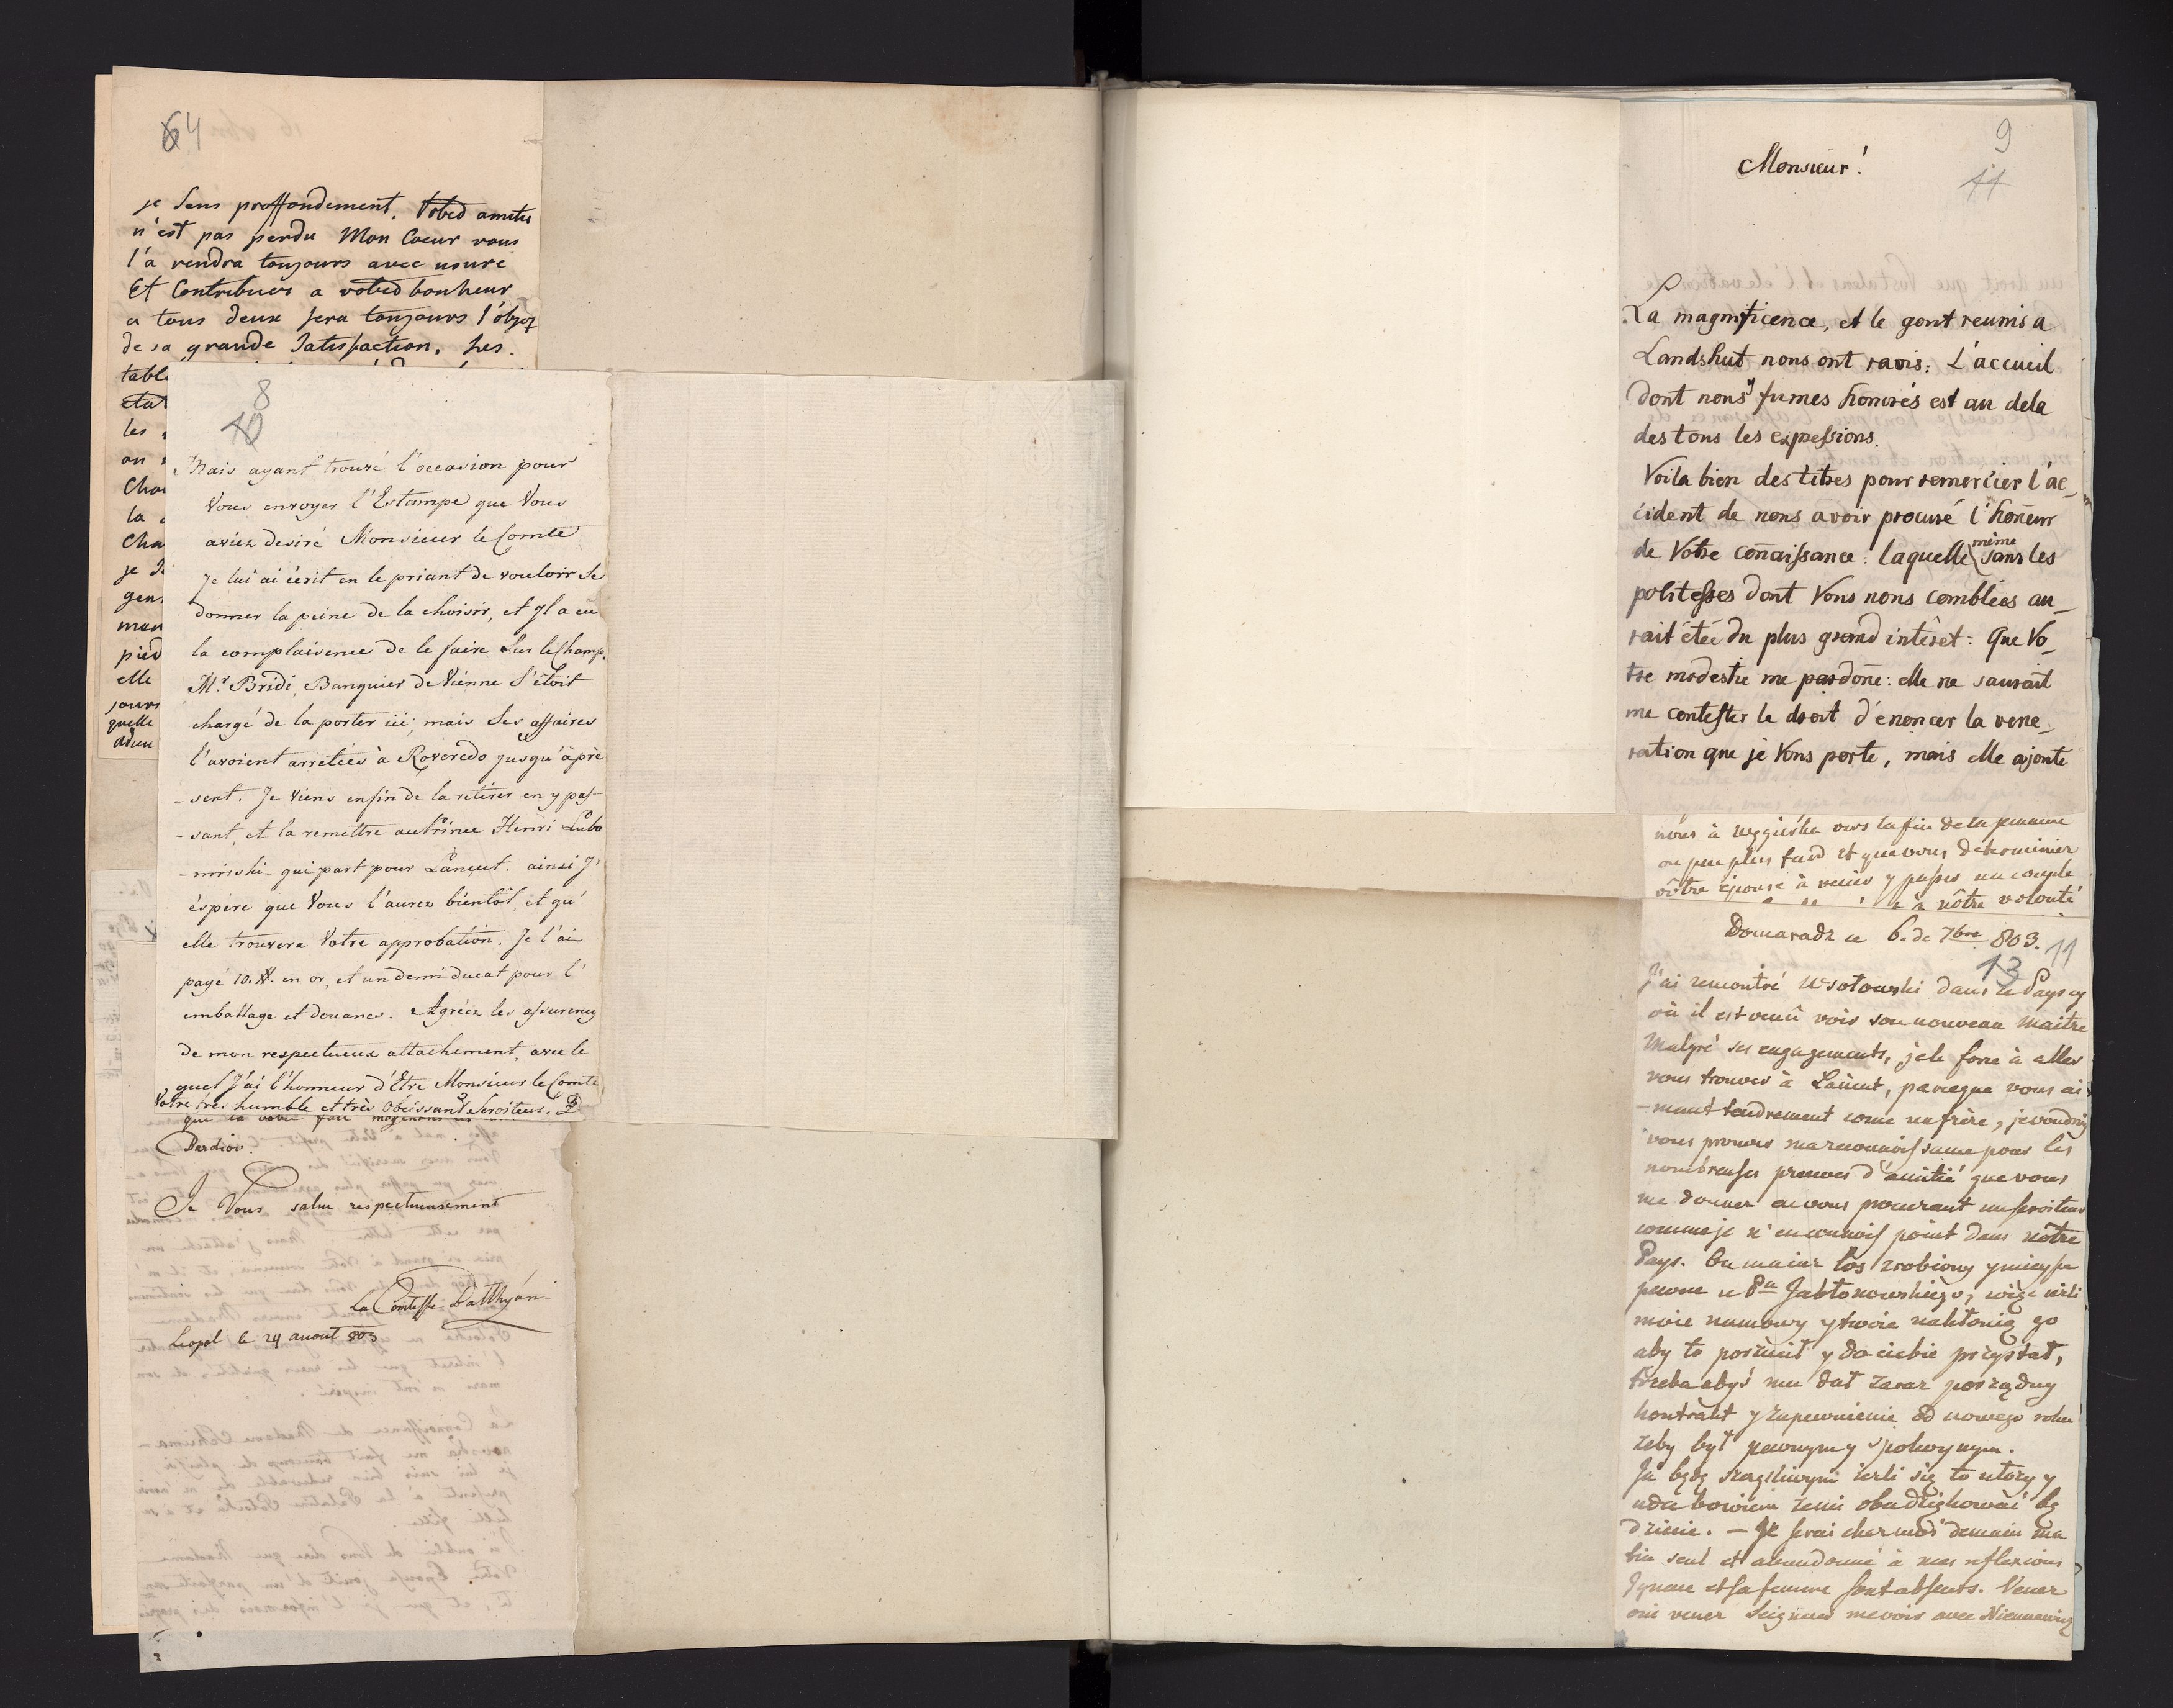 64
je sens proffondement. Votred amitis
n'est pas perdu Mon Coeur vous
l'a rendra toujours avec usure
Et Contribuer a votred bonheur
a tous deux sera toujours l'objez
de sa grande Satisfaction. Les
table
etat
les
on
Cho
la
Cha
je
gen
mon
pied
elle
jours
quelle
dieu
8
10
Mais ayant trouvé l'occasion pour
Vous envoyer l'Estampe que Vous
aviez desiré Monsieur le Comte
Je lui ai écrit en le priant de vouloir se
donner la peine de la choisir, et Jl a eu
la complaisence de le faire sur le champ.
Mr Bridi, Banquier de Viénne s'étoit
chargé de la porter ici; mais ses affaires
l'avoient arretées à Roveredo jusqu'àprè
-sent. Je viens enfin de la retirer en y pas-
-sant, et la remettre au Prince Henri Lubo
-mirski qui part pour Lançut. ainsi J'
éspére que Vous l'aurez bientôt, et qu'
elle trouvera Votre approbation. Je l'ai
payé 10. #. en or, et un demi ducat pour l'
emballage et douanes. Agréez les assurences
de mon respectueux attachement, avec le
quel J'ai l'honneur d'Etre Monsieur le Comte
Votre très humble et très obéissant Serviteur.
Pardion.
Je Vous salue respectueusement
La Comtesse Batthyán
Leopol le 24 auout 803
9
11
Monsieur!
La magnificence, et le gout reunis a
Landshut nous ont ravis: L'accueil
dont nous y fumes honorés est au dela
des tous les expressions.
Voila bien des titres pour remercier l'ac_
cident de nous avoir procuré l'honeur
de Votre conaissance: laquelle même sans les
politesses dont Vous nous comblées au_
rait étée du plus grand intêret: Que Vo_
tre modestie me pardone: elle ne saurait
me contester le droit d'énoncer la vene_
ration que je Vous porte, mais elle ajoute
nous à vers la fin de la
ou peu plus tard et que vous determinier
vôtre épouse à venir y passer un couple
à nôtre volonté
Domaradz ce 6. de 7bre 803.
11
13
J'ai rencontré Wsołowski dans ce Pays cy
où il est venû voir son nouveau Maitre
Malgré ses engagements, je le force à aller
vous trouver à Lançut, parceque vous ai
-mant tendrement come un frère, je voudrois
vous prouver ma reconnoissance pour les
nombreuses preuves d'amitié que vous
me donner en vous procurant un serviteur
comme je n'en connois point dans nôtre
Pays. On maiąc los zrobiony y mieysce
pewne u Pa Jabłonowskiego, więc ieżli
moie namowy y twoie nakłonią go
aby to porzucił y do ciebie przystał,
trzeba abyś mu dał zaraz porządny
kontrakt y zapewnienie od nowego roku
żeby był pewnym y spokoynym.
Ja będę szczęśliwym ieżli się to ułoży y
uda bowiem żemi oba dziękować bę
dziecie. - Je serai chez moi demain ma
tin seul et abandonné à mes reflexions
Ignace et sa femme sont absents. Venez
oui venez Seigneur me voir avec Niemcewicz